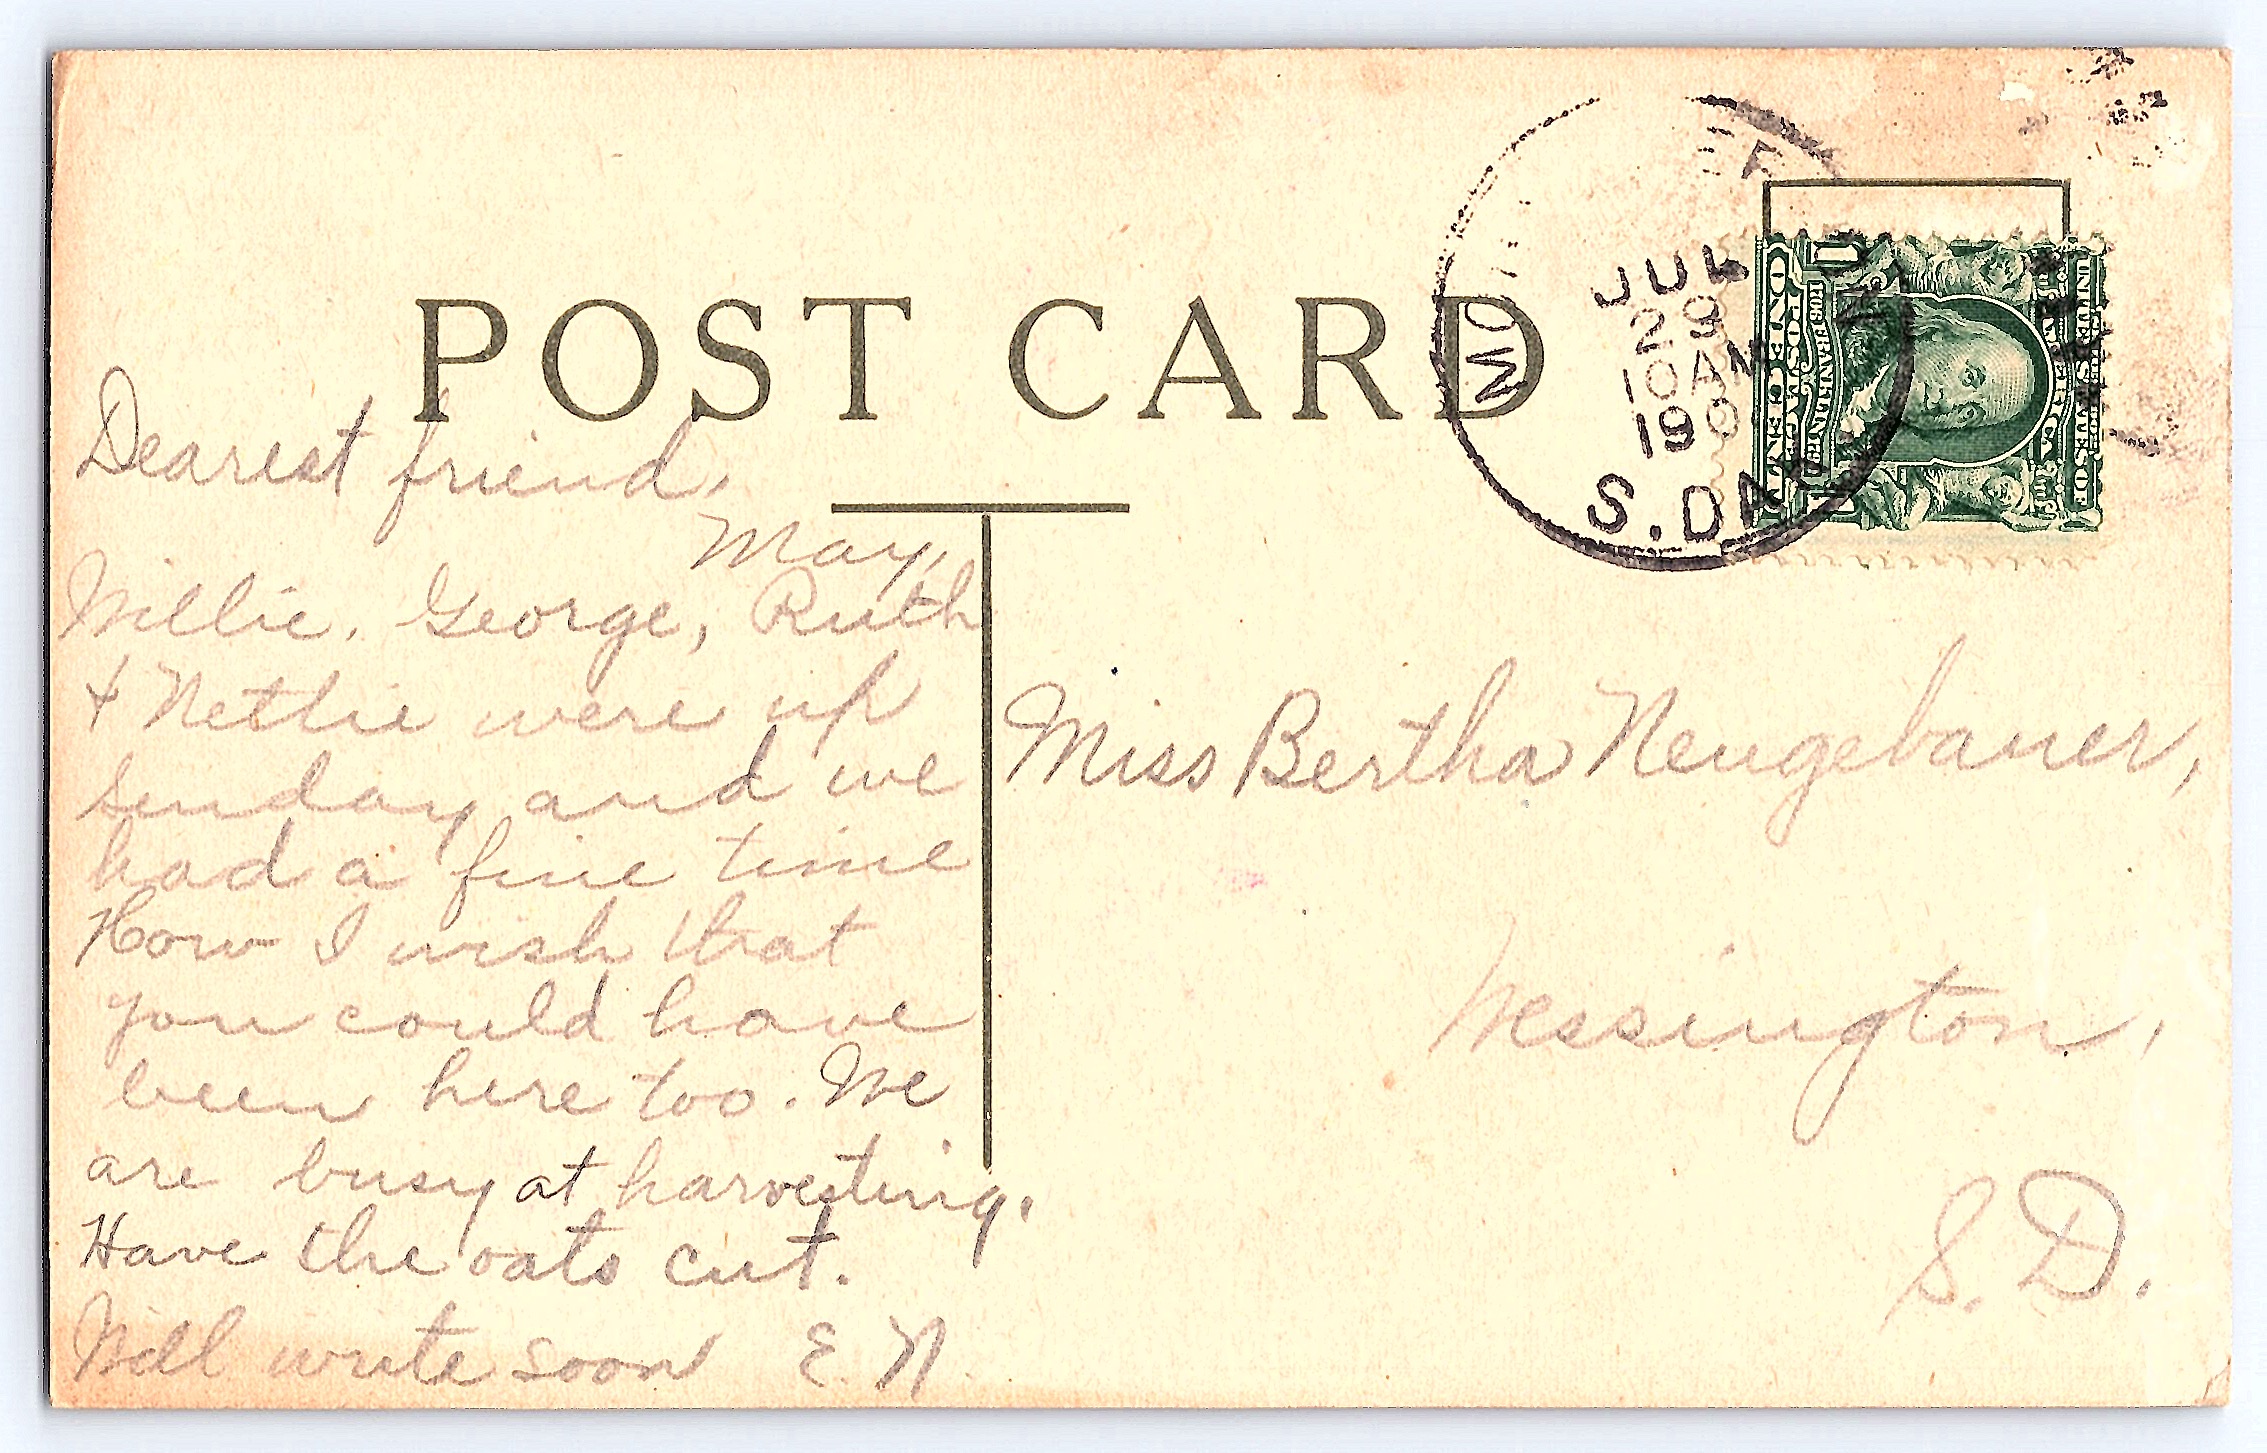 POST CARD
JUL
29
10 AM
190
S. DAK
UNITED STATES OF AMERICA
FRANKLIN
POSTAGE
ONE CENT
Dearest friend,
May,
Willie, George, Ruth
& Nettie were up
sunday and we
had a fine time
How I wish that
you could have
been here too. We
are busy at harvesting.
Have the oats cut.
Will write soon E. N.
Miss Bertha Neugebauer,
Wessington,
S. D.